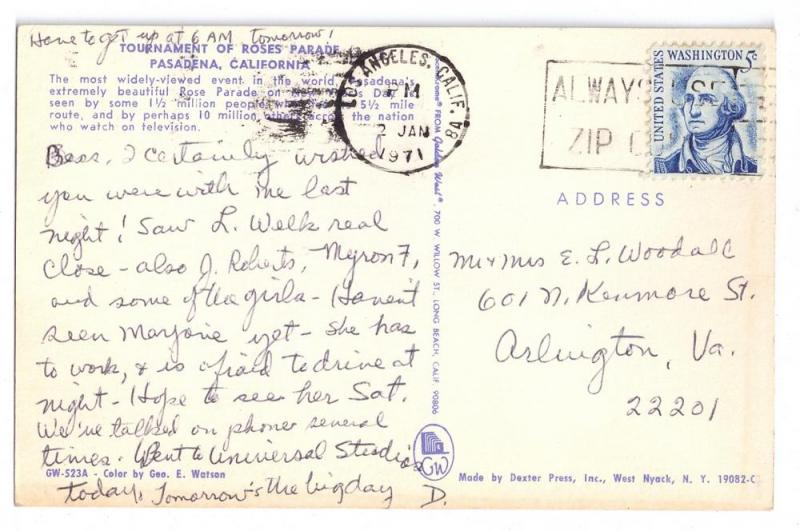 Have to get up at 6 AM tomorrow!
TOURNAMENT OF ROSES PARADE
PASADENA, CALIFORNIA
The most widely-viewed event in the world, Pasadena's
extremely beautiful Rose Parade on New Year's Day is
seen by some 1½ million people who line the 5½ mile
route, and by perhaps 10 million others across the nation
who watch on television.
I certainly wished
you were with me last
night! Saw L. Welk real
close - also J. Roberts, Myron F,
and some of the girls - Haven't
seen Marjorie yet - She has
to work, & is afraid to drive at
night - Hope to see her Sat.
We've talked on phone several
times. Went to Universal Studios
GW-523A - Color by Geo. E. Watson
today. Tomorrow's the big day D.
LOS ANGELES, CALIF.
PM
2 JAN
1971
FROM Golden West®, 700 W. WILLOW ST., LONG BEACH, CALIF. 90806
GW
ALWAYS USE
ZIP
UNITED STATES
WASHINGTON 5c
ADDRESS
Mr & Mrs E. L. Woodall
601 N. Kenmore St.
Arlington, Va.
22201
Made by Dexter Press, Inc., West Nyack, N. Y. 19082-C